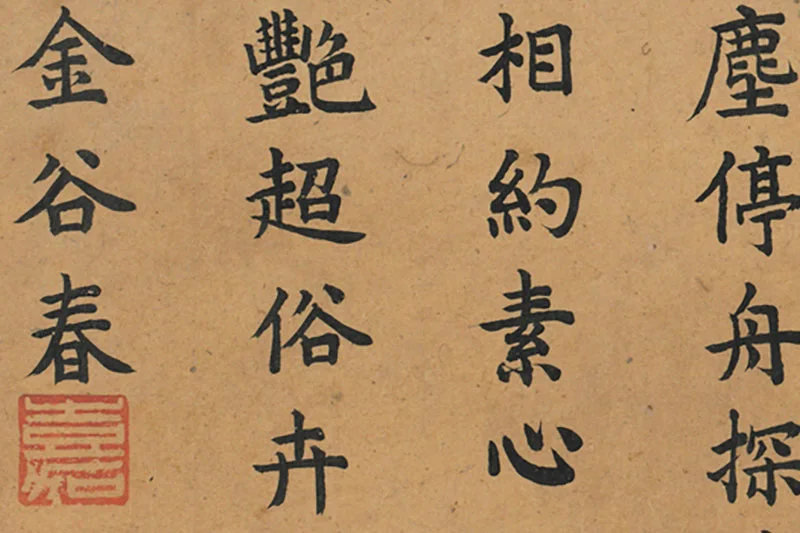 塵停舟探
相約素心
艷超俗卉
金谷春